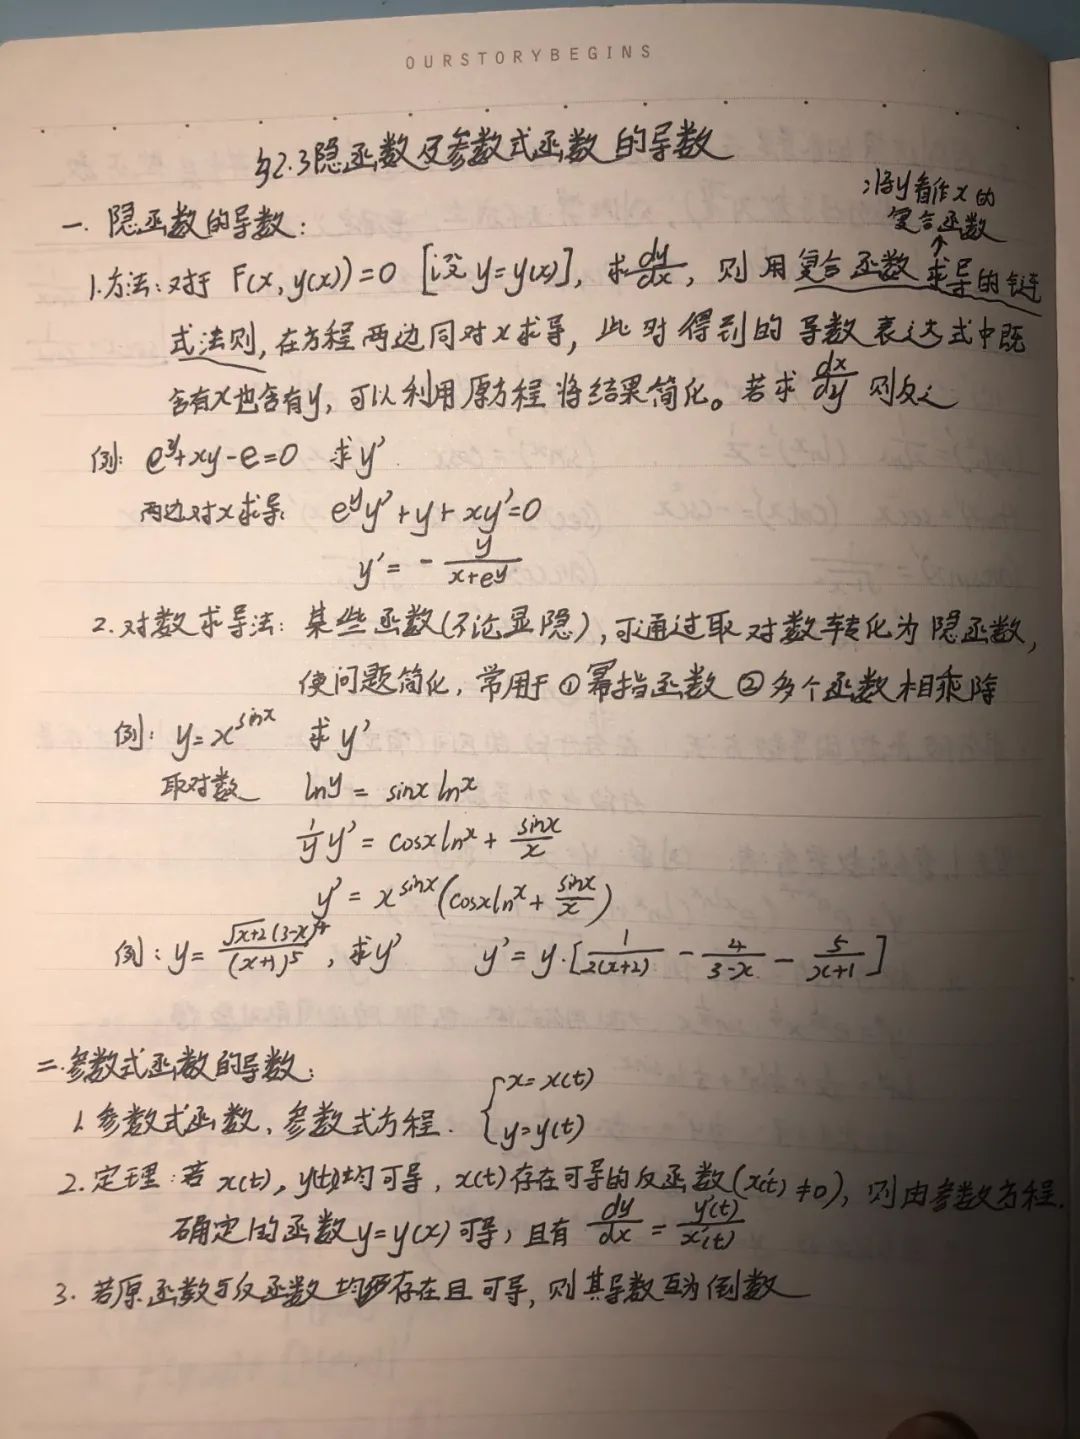 OURSTORYBEGINS
§2.3隐函数及参数式函数的导数
一. 隐函数的导数:
:将y看作x的
复合函数
1.方法:对于 F(x, y(x))=0 [设 y=y(x)], 求dy/dx, 则用复合函数求导的链
式法则, 在方程两边同对x求导, 此时得到的导数表达式中既
含有x也含有y, 可以利用原方程将结果简化。若求 dx/dy 则反之
例: e^y+xy-e=0 求y'
两边对x求导: e^y y'+y+xy'=0
y'= - y/(x+e^y)
2.对数求导法: 某些函数(不论显隐), 可通过取对数转化为隐函数,
使问题简化, 常用于①幂指函数②多个函数相乘除
例: y=x^sinx 求y'
取对数 lny = sinx lnx
1/y y' = cosx lnx + sinx/x
y' = x^sinx (cosx lnx + sinx/x)
例: y= √x+2 (3-x)^4/(x+1)^5, 求y' y'=y·[1/2(x+2) - 4/3-x - 5/x+1]
二.参数式函数的导数:
1.参数式函数、参数式方程. { x=x(t)
y=y(t)
2.定理:若 x(t), y(t)均可导, x(t)存在可导的反函数(x'(t)≠0), 则由参数方程.
确定的函数y=y(x)可导, 且有 dy/dx = y'(t)/x'(t)
3. 若原函数与反函数均存在且可导, 则其导数互为倒数